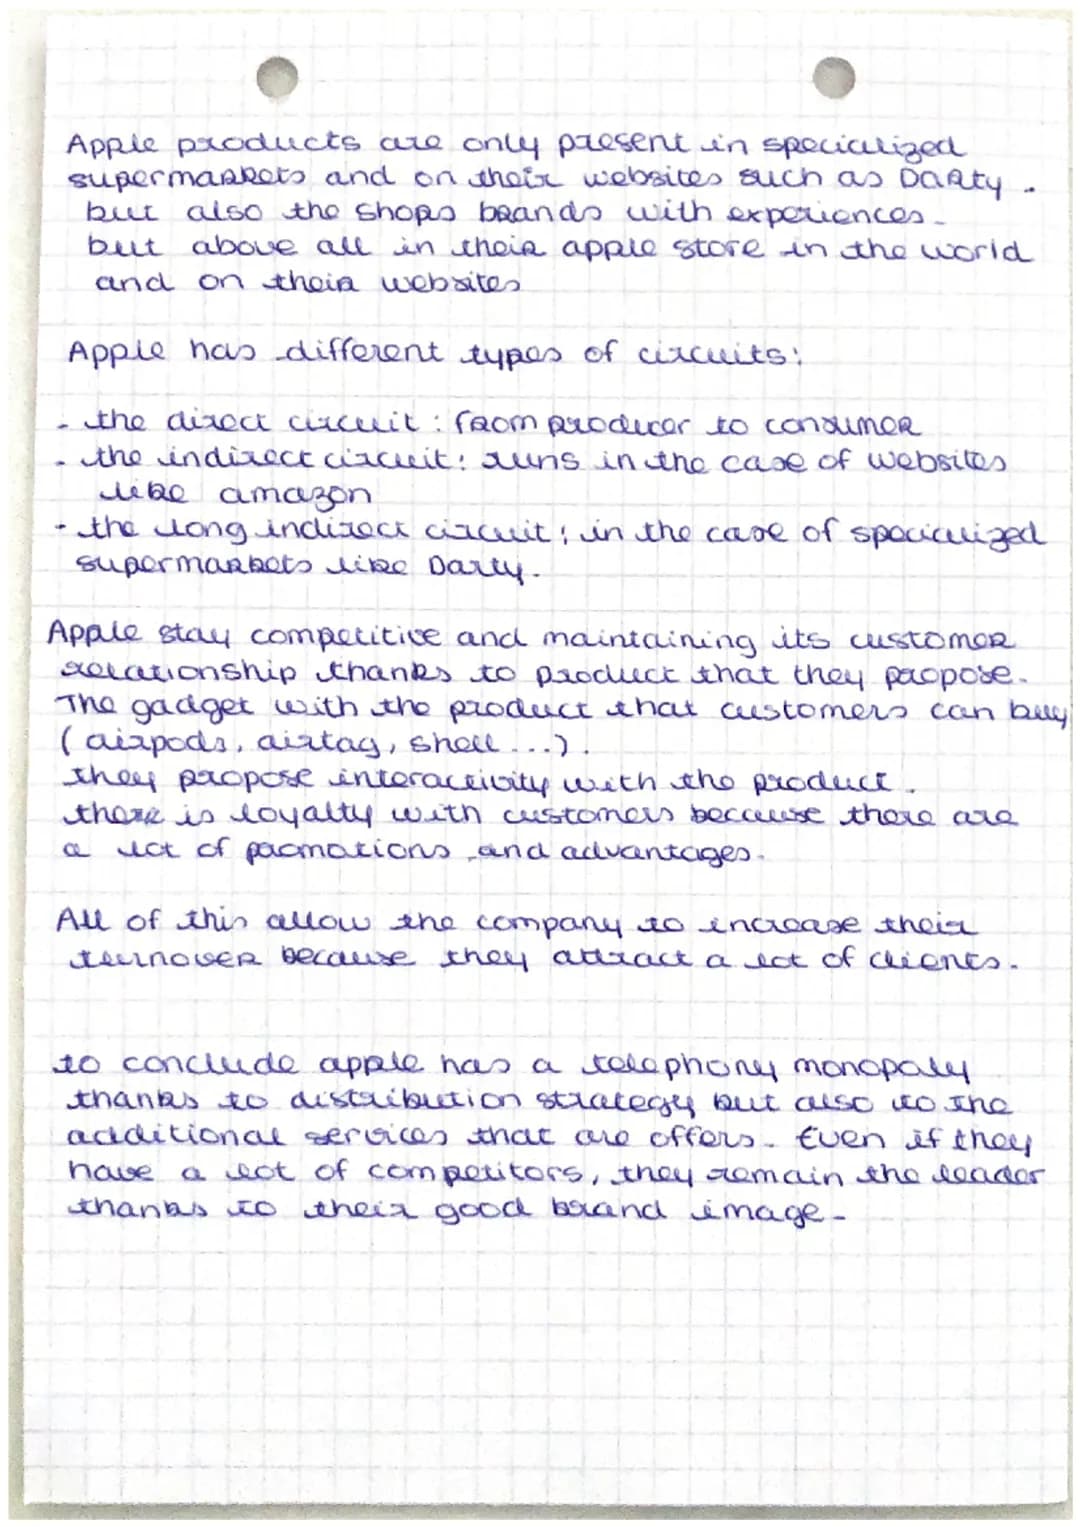 Apple products are only present in specialized
supermarkets and on their websites such as Darty.
but also the shops brands with experiences.
but above all in their apple store in the world
and on their websites
Apple has different types of circuits:
- the direct circuit : from producer to consumer
- the indirect circuit: runs in the case of websites
like amazon
- the long indirect circuit; in the case of specialized
supermarkets like Darty.
Apple stay competitive and maintaining its customer
relationship thanks to product that they propose.
The gadget with the product that customers can buy
(airpods, airtag, shell ...).
they propose interactivity with the product.
there is loyalty with customers because there are
a lot of promotions and advantages.
All of this allow the company to increase their
turnover because they attract a lot of clients.
to conclude apple has a telephony monopoly
thanks to distribution strategy but also to the
additional services that are offers. Even if they
have a lot of competitors, they remain the leader
thanks to their good brand image.